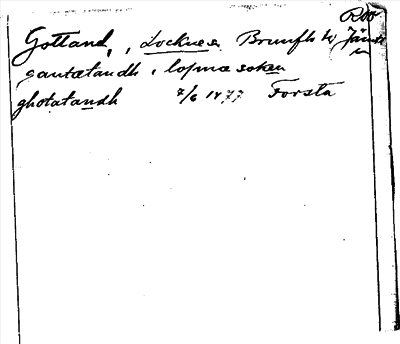 Gotland, , Lockne s. Brunflo td, Jämt
gautætandh i lopnæ soken
ghotatandh 7/6 1477 Forsta